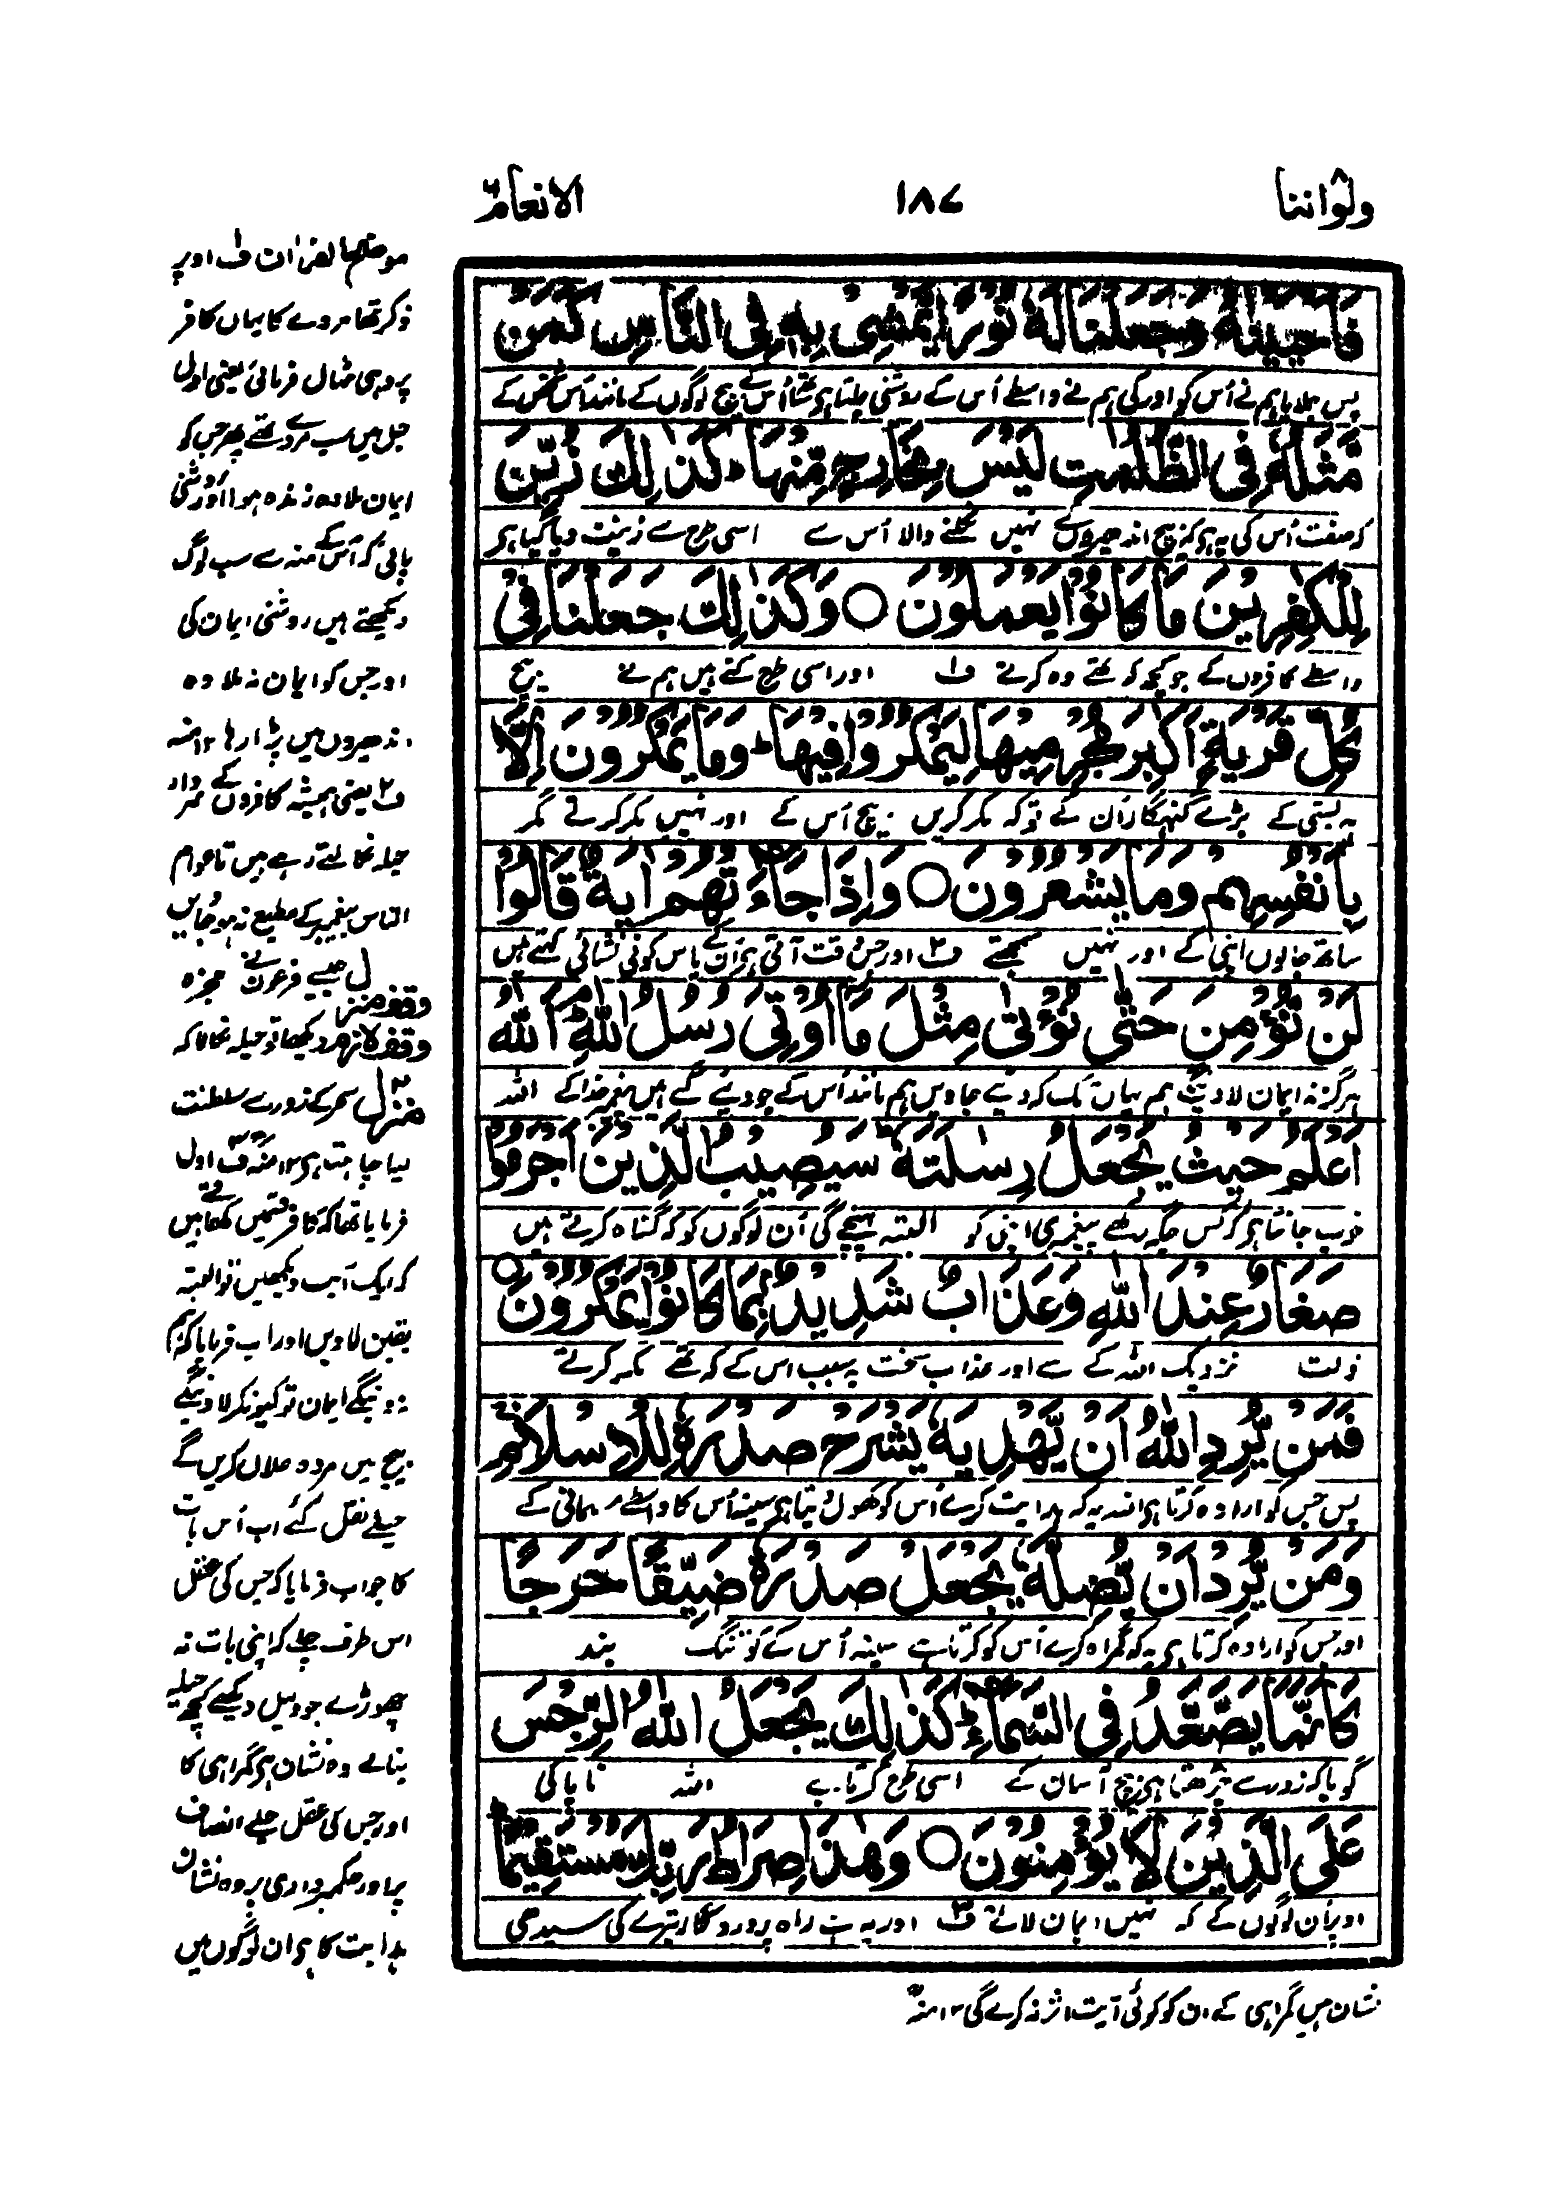 ولواننا ۸
۱۸۷
الانعام ۶
فَاَحْيَيْنٰهُ وَجَعَلْنَا لَهٗ نُوْرًا يَّمْشِيْ بِهٖ فِي النَّاسِ كَمَنْ
پس جلایا ہم نے اُس کو اور کی ہم نے واسطے اُس کے روشنی چلتا ہر ساتھ اُس کے بیچ لوگوں کے مانند اُس شخص کے
مَّثَلُهٗ فِي الظُّلُمٰتِ لَيْسَ بِخَارِجٍ مِّنْهَا ؕ كَذٰلِكَ زُيِّنَ
کہ صفت اُس کی یہ ہر کہ بیچ اندھیروں کے نہیں نکلنے والا اُس سے اسی طرح سے زینت دیا گیا ہر
لِلْكٰفِرِيْنَ مَا كَانُوْا يَعْمَلُوْنَ ○ وَكَذٰلِكَ جَعَلْنَا فِيْ
واسطے کافروں کے جو کچھ کہ تھے وہ کرتے ف۱ اور اسی طرح کئے ہیں ہم نے بیچ
كُلِّ قَرْيَةٍ اَكٰبِرَ مُجْرِمِيْهَا لِيَمْكُرُوْا فِيْهَا ؕ وَمَا يَمْكُرُوْنَ اِلَّا
یہ بستی کے بڑے گنہگار اُن کے توکہ مکر کریں بیچ اُس کے اور نہیں مکر کرتے مگر
بِاَنْفُسِهِمْ وَمَا يَشْعُرُوْنَ ○ وَاِذَا جَآءَتْهُمْ اٰيَةٌ قَالُوْا
ساتھ جانوں اپنی کے اور نہیں سمجھتے ف۲ اور جس وقت آتی ہر اُن کے پاس کوئی نشانی کہتے ہیں
لَنْ نُّؤْمِنَ حَتّٰى نُؤْتٰى مِثْلَ مَاۤ اُوْتِيَ رُسُلُ اللّٰهِ ؕ اَللّٰهُ
ہرگز نہ ایمان لاویں گے ہم یہاں تک کہ دیے جاویں ہم مانند اُس کے جو دیئے گئے ہیں پیغمبر خدا کے اللہ
اَعْلَمُ حَيْثُ يَجْعَلُ رِسٰلَتَهٗ ؕ سَيُصِيْبُ الَّذِيْنَ اَجْرَمُوْا
خوب جانتا ہر کہ کس جگہ رکھے پیغمبری اپنی کو البتہ پہنچے گی اُن لوگوں کو کہ گناہ کرتے ہیں
صَغَارٌ عِنْدَ اللّٰهِ وَعَذَابٌ شَدِيْدٌۢ بِمَا كَانُوْا يَمْكُرُوْنَ ○
ذلت نزدیک اللہ کے سے اور عذاب سخت بہ سبب اس کے کہ تھے مکر کرتے
فَمَنْ يُّرِدِ اللّٰهُ اَنْ يَّهْدِيَهٗ يَشْرَحْ صَدْرَهٗ لِلْاِسْلَامِ ۚ
پس جس کو ارادہ کرتا ہر اللہ یہ کہ ہدایت کرے اُس کو کھول دیتا ہر سینہ اُس کا واسطے مسلمانی کے
وَمَنْ يُّرِدْ اَنْ يُّضِلَّهٗ يَجْعَلْ صَدْرَهٗ ضَيِّقًا حَرَجًا
اور جس کو ارادہ کرتا ہر یہ کہ گمراہ کرے اُس کو کرتا ہے سینہ اُس کے کو تنگ بند
كَاَنَّمَا يَصَّعَّدُ فِي السَّمَآءِ ؕ كَذٰلِكَ يَجْعَلُ اللّٰهُ الرِّجْسَ
گویا کہ زور سے چڑھتا ہر بیچ آسمان کے اسی طرح کرتا ہے اللہ ناپاکی
عَلَى الَّذِيْنَ لَا يُؤْمِنُوْنَ ○ وَهٰذَا صِرَاطُ رَبِّكَ مُسْتَقِيْمًا ؕ
اوپر اُن لوگوں کے کہ نہیں ایمان لاتے ف۳ اور یہ ہے راہ پروردگار تیرے کی سیدھی
موضح القرآن ف۱ اوپر
ذکر تھا مردے کا یہاں کافر
پر وہی مثال فرمائی یعنی اول
جہل میں سب مردے تھے پھر جس کو
ایمان ملا وہ زندہ ہوا اور روشنی
پائی کہ اُس کے منہ سے سب لوگ
دیکھتے ہیں روشنی ایمان کی
اور جس کو ایمان نہ ملا وہ
اندھیروں میں پڑا رہا ۱۲ منہ
ف۲ یعنی ہمیشہ کافروں کے سردار
حیلہ نکالتے رہے ہیں تا عوام
الناس پیغمبر کے مطیع نہ ہو جائیں
جیسے فرعون نے معجزہ
وقف منزل
وقف لازم دیکھا تو حیلہ نکالا کہ
منزل ۲ سحر کے زور سے سلطنت
لیا چاہتا ہر ۱۲ منہ ف۳ اول
فرمایا تھا کہ کافر قسمیں کھاتے ہیں
کہ ایک آیت دیکھیں تو البتہ
یقین لاویں اور اب فرمایا کہ ہم
نہ دینگے ایمان تو کیونکر لاوینگے
بیچ میں مردہ حلال کریں گے
حیلے نقل کئے اب اُس بات
کا جواب فرمایا کہ جس کی عقل
اس طرف چلے کہ اپنی بات نہ
چھوڑے جو دلیل دیکھے کچھ حیلہ
بنالے وہ نشان ہر گمراہی کا
اور جس کی عقل چلے انصاف
پر اور حکمبرداری پر وہ نشان
ہدایت کا ہر ان لوگوں میں
نشان ہیں گمراہی کے ان کو کوئی آیت اثر نہ کرے گی ۱۲ منہ